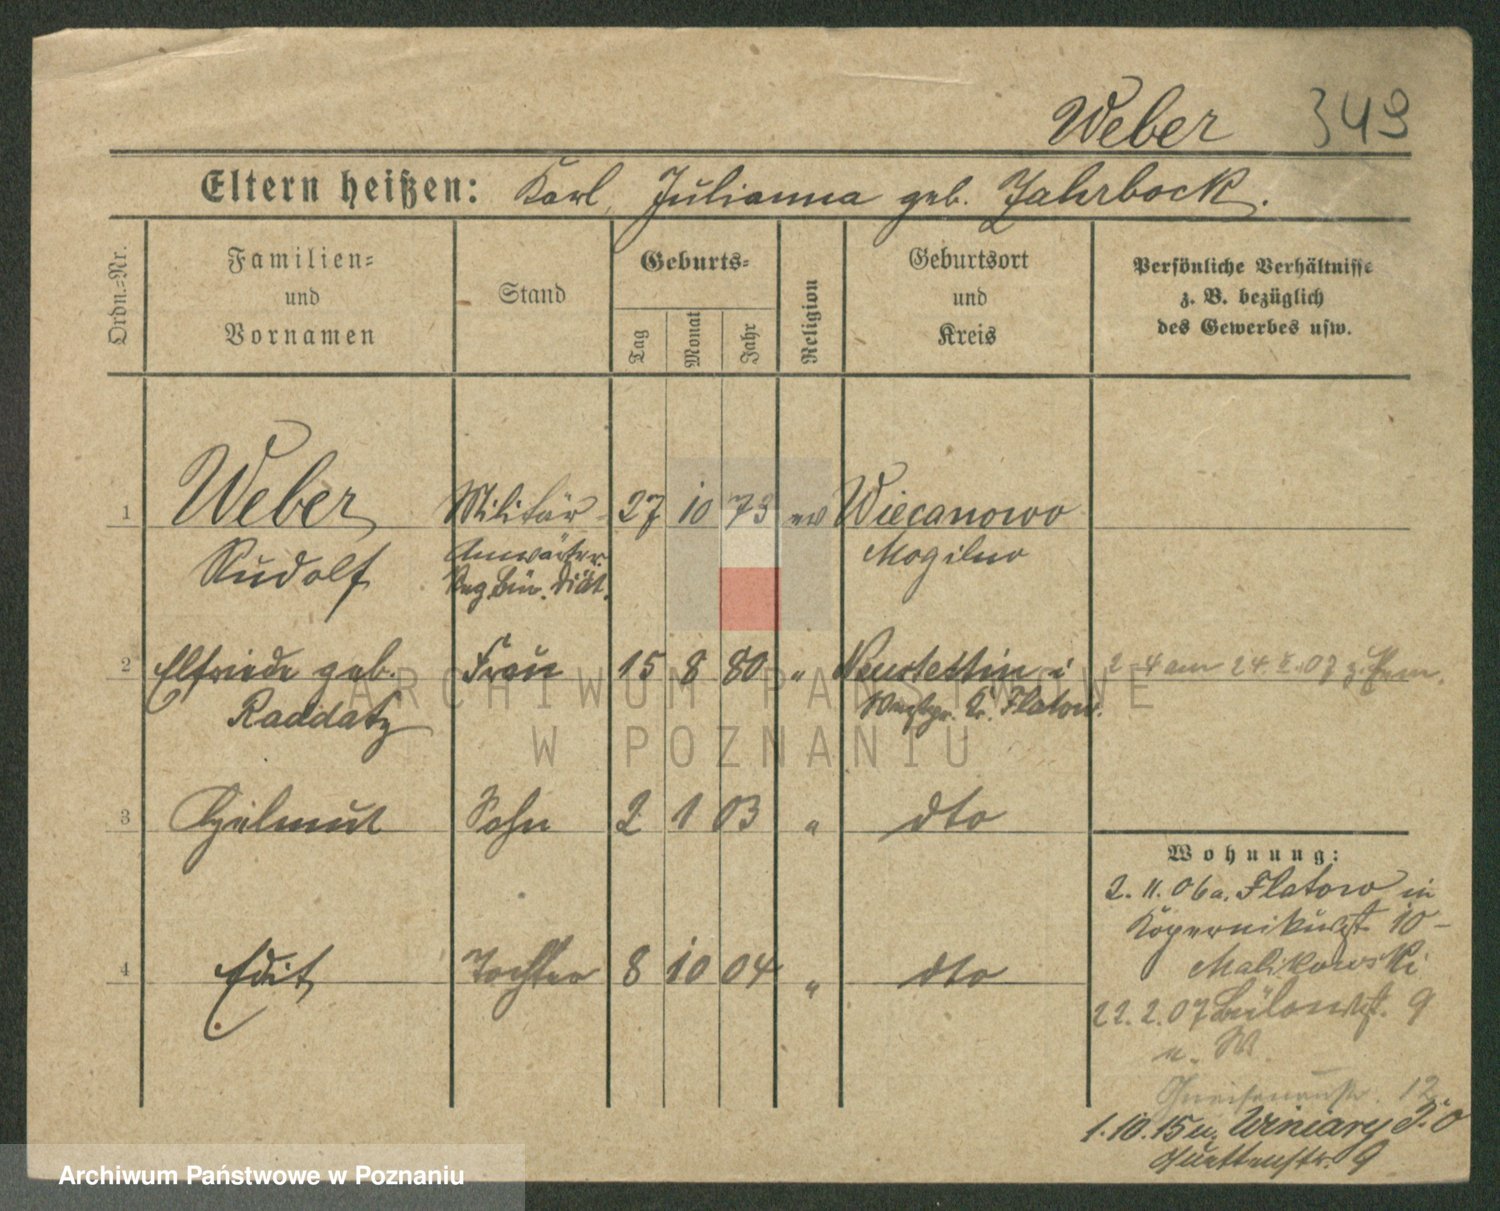 Weber 349
Eltern heißen: Karl, Julianna geb. Jahrbock.
Ordn.-Nr.
Familien-
und
Vornamen
Stand
Geburts-
Tag
Monat
Jahr
Religion
Geburtsort
und
Kreis
Persönliche Verhältnisse
z. B. bezüglich
des Gewerbes usw.
1 Weber Militär- 27 10 73 ev Wiecanowo
Rudolf Anwärter Mogilno
Diät.
2 Elfriede geb. Frau 15 8 80 " Neustettin i
Raddatz Westpr. Kr. Flatow.
2-4 am 24. 07
3 Helmut Sohn 2 1 03 " dto
4 Edit Tochter 8 10 04 " dto
Wohnung:
2. 11. 06 a. Flatow in
Kopernikusst. 10-
Malikowski
22. 2. 07 Bülowst. 9
n. W.
Gneisenaustr. 12
1. 10. 15 n. Winiary
9
ARCHIWUM PAŃSTWOWE
W POZNANIU
Archiwum Państwowe w Poznaniu